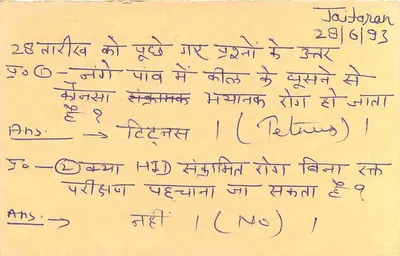 Jaitaran
28/6/93
28 तारीख को पूछे गए प्रश्नों के उत्तर
प्र० ① - नंगे पांव में कील के घुसने से
कौनसा संक्रामक भयानक रोग हो जाता
है ?
Ans. → टिटनस । (Tetnus) ।
प्र०- ② क्या HID संक्रामित रोग बिना रक्त
परीक्षण पहचाना जा सकता है ?
Ans. → नहीं । (No) ।